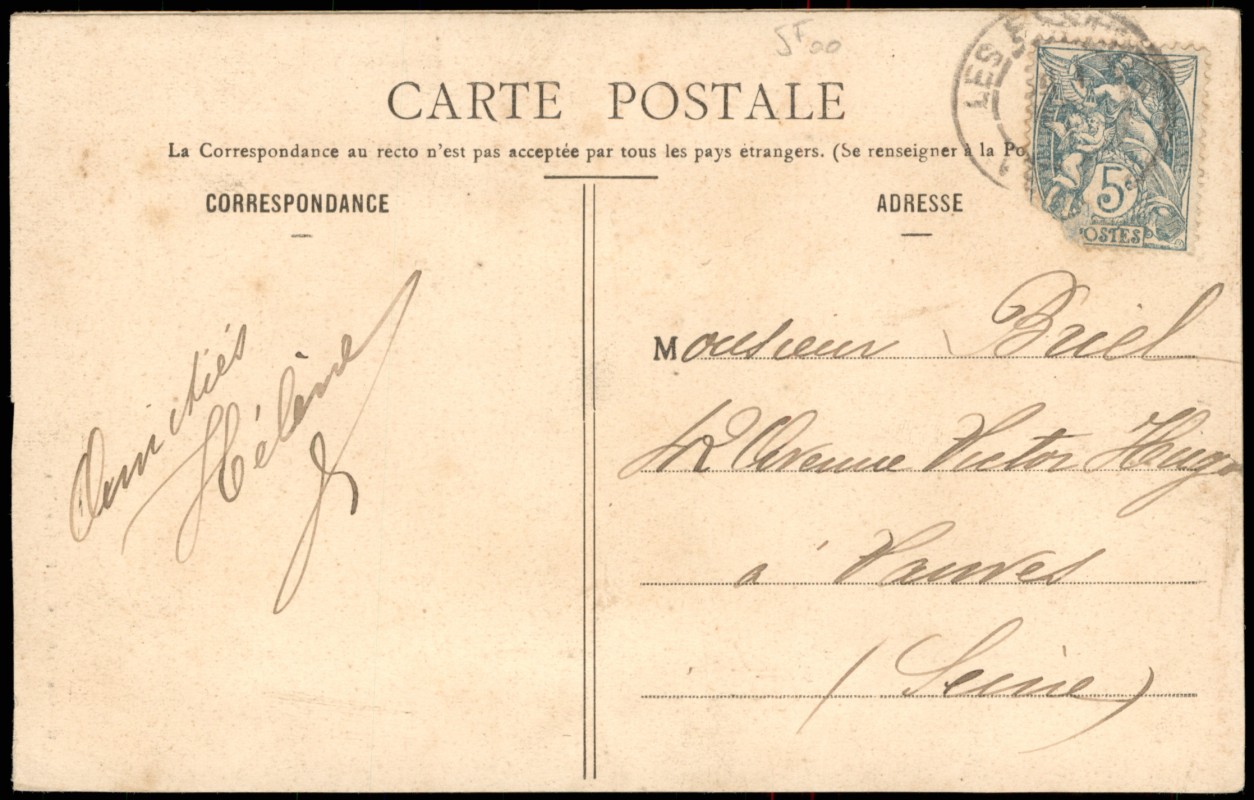 5F00
CARTE POSTALE
La Correspondance au recto n'est pas acceptée par tous les pays étrangers. (Se renseigner à la Po
CORRESPONDANCE
ADRESSE
LES
5c
POSTES
Amitiés
Hélène
Monsieur Briel
42 Avenue Victor Hugo
à Vanves
(Seine)